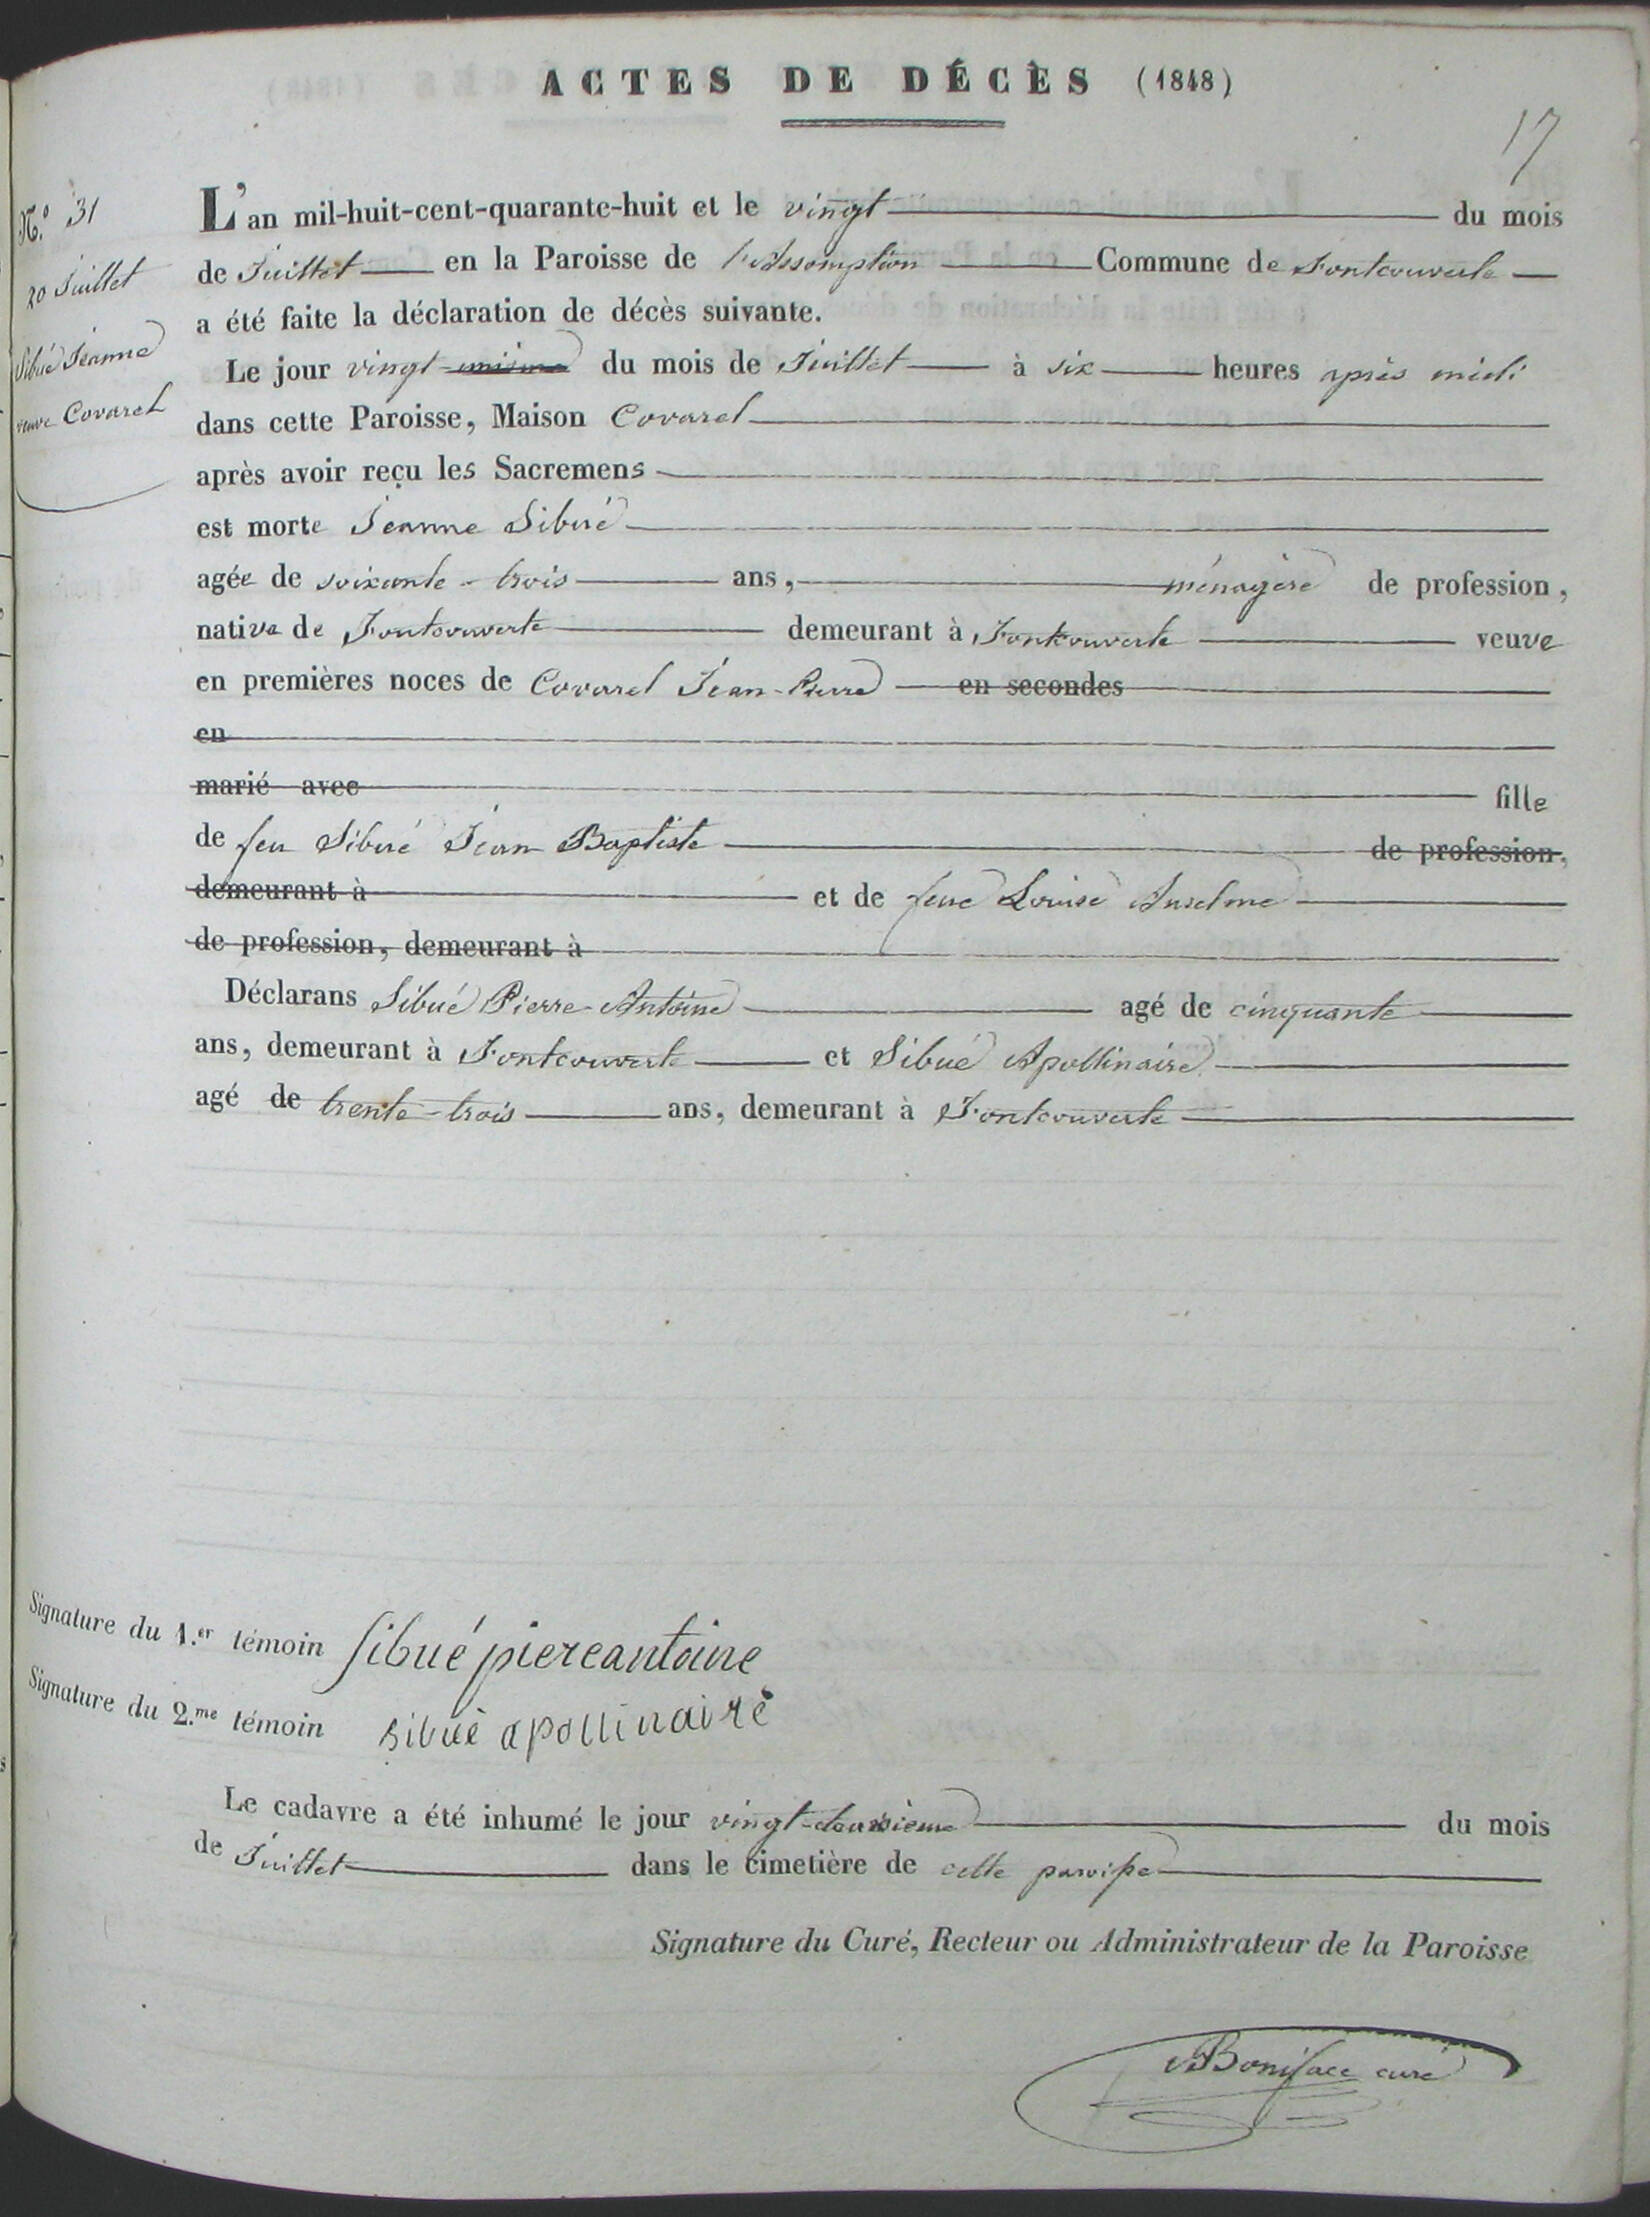 ACTES DE DÉCÈS (1848)
17
N.º 31
20 Juillet
Sibué Jeanne
veuve Covarel
L'an mil-huit-cent-quarante-huit et le vingt du mois
de Juillet en la Paroisse de l'Assomption Commune de Fontcouverte
a été faite la déclaration de décès suivante.
Le jour vingt-unième du mois de Juillet à six heures après midi
dans cette Paroisse, Maison Covarel
après avoir reçu les Sacremens
est morte Jeanne Sibué
agée de soixante-trois ans, ménagère de profession,
native de Fontcouverte demeurant à Fontcouverte veuve
en premières noces de Covarel Jean-Pierre en secondes
en
marié avec fille
de feu Sibué Jean Baptiste de profession,
demeurant à et de feue Louise Anselme
de profession, demeurant à
Déclarans Sibué Pierre-Antoine agé de cinquante
ans, demeurant à Fontcouverte et Sibué Apollinaire
agé de trente-trois ans, demeurant à Fontcouverte
Signature du 1.er témoin Sibué piereantoine
Signature du 2.me témoin sibué apollinaire
Le cadavre a été inhumé le jour vingt-deuxième du mois
de Juillet dans le cimetière de cette paroisse
Signature du Curé, Recteur ou Administrateur de la Paroisse
Boniface curé